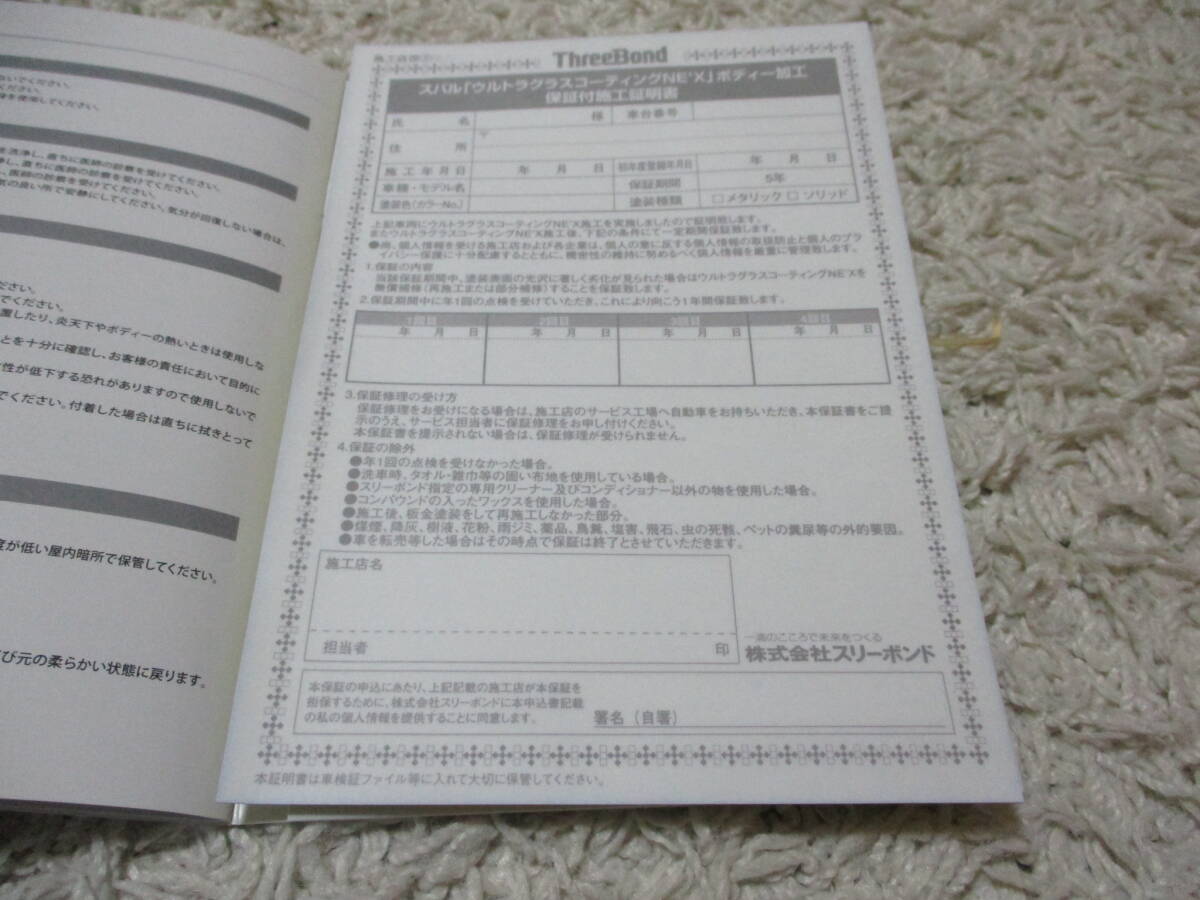 ないでください。
ください。
を使用してください。
を洗浄し、直ちに医師の診察を受けてください。
浄し、直ちに医師の診察を受けてください。
、医師の診察を受けてください。
気の良い所で安静にしてください。気分が回復しない場合は、
ださい。
でください。
置したり、炎天下やボディーの熱いときは使用しな
とを十分に確認し、お客様の責任において目的に
性が低下する恐れがありますので使用しないで
でください。付着した場合は直ちに拭きとって
度が低い屋内暗所で保管してください。
び元の柔らかい状態に戻ります。
ThreeBond
スバル「ウルトラグラスコーティングNE'X」ボディー加工
保証付施工証明書
氏 名 様 車台番号
住 所 〒
施工年月日 年 月 日 初年度登録年月日 年 月 日
車種・モデル名 保証期間 5年
塗装色(カラーNo.) 塗装種類 □メタリック □ソリッド
上記車両にウルトラグラスコーティングNE'X施工を実施しましたので証明致します。
またウルトラグラスコーティングNE'X施工後、下記の条件にて一定期間保証致します。
●尚、個人情報を受ける施工店および各企業は、個人の意に反する個人情報の取扱防止と個人のプラ
イバシー保護に十分配慮するとともに、機密性の維持に努めるべく個人情報を厳重に管理致します。
1.保証の内容
当該保証期間中、塗装表面の光沢に著しく劣化が見られた場合はウルトラグラスコーティングNE'Xを
無償補修(再施工または部分補修)することを保証致します。
2.保証期間中に年1回の点検を受けていただき、これにより向こう1年間保証致します。
1回目 2回目 3回目 4回目
年 月 日 年 月 日 年 月 日 年 月 日
3.保証修理の受け方
保証修理をお受けになる場合は、施工店のサービス工場へ自動車をお持ちいただき、本保証書をご提
示のうえ、サービス担当者に保証修理をお申し付けください。
本保証書を提示されない場合は、保証修理が受けられません。
4.保証の除外
●年1回の点検を受けなかった場合。
●洗車時、タオル・雑巾等の固い布地を使用している場合。
●スリーボンド指定の専用クリーナー及びコンディショナー以外の物を使用した場合。
●コンパウンドの入ったワックスを使用した場合。
●施工後、板金塗装をして再施工しなかった部分。
●煤煙、降灰、樹液、花粉、雨ジミ、薬品、鳥糞、塩害、飛石、虫の死骸、ペットの糞尿等の外的要因。
●車を転売等した場合はその時点で保証は終了とさせていただきます。
施工店名
担当者 印
一滴のこころで未来をつくる
株式会社スリーボンド
本保証の申込にあたり、上記記載の施工店が本保証を
担保するために、株式会社スリーボンドに本申込書記載
の私の個人情報を提供することに同意します。 署名(自署)
本証明書は車検証ファイル等に入れて大切に保管してください。